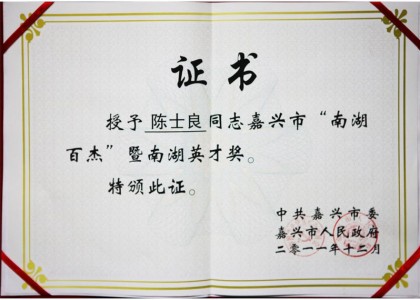 证书
授予陈士良同志嘉兴市“南湖
百杰”暨南湖英才奖。
特颁此证。
中共嘉兴市委
嘉兴市人民政府
二〇一一年十二月